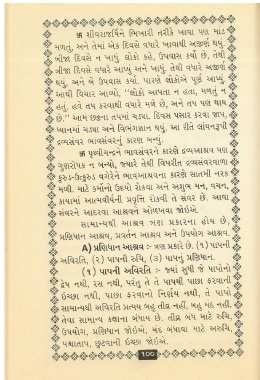 卐 શીવરાજર્ષિને ભિખારી તરીકે ખાવા પણ માંડ
મળતું, અને તેમાં એક દિવસ વધારે ખાવાથી અજીર્ણ થયું.
બીજા દિવસે ન ખાધું. લોકો કહે, ઉપવાસ કર્યો છે, તેથી
બીજા દિવસે વધારે આપ્યું અને ખાધું. તેથી વધારે અજીર્ણ
થયું, અને બે ઉપવાસ કર્યા. પારણે લોકોએ પૂર્ણ આપ્યું.
આથી વિચાર આવ્યો, "લોકો આપતા ન હતા, મળતું ન
હતું, હવે તપ કરવાથી વધારે મળે છે, અને તપ પણ થાય
છે." આમ છઠ્ઠના તપમાં ચડ્યા. દિવસ પસાર કરવા જાપ,
ધ્યાનમાં ચડ્યા અને વિભંગજ્ઞાન થયું. આ રીતે લાંચનરૂપી
દ્રવ્યસંવર ભાવસંવરનું કારણ બન્યું.
卐 પૃથ્વીચન્દ્રને ભાવસંવરને કારણે દ્રવ્યઆશ્રવ પણ
ગુણારોપક ન બન્યો, જ્યારે તેથી વિપરીત દ્રવ્યસંવરવાળા
કુરુડ-ઉત્કુરુડ વગેરેને ભાવઆશ્રવના કારણે સાતમી નરક
મળી. માટે કર્મોનો ઉદયો રોકવા અને અશુભ મન, વચન,
કાયામાં આત્મવીર્યની પ્રવૃત્તિ રોકવી તે સંવર છે. આવા
સંવરને આદરવા આશ્રવને ઓળખવા જોઇએ.
સામાન્યથી આશ્રવ ત્રણ પ્રકારના હોય છે,
પ્રણિધાન આશ્રવ, પ્રવર્તન આશ્રવ અને ઉપયોગ આશ્રવ.
A) પ્રણિધાન આશ્રવ :- ત્રણ પ્રકારે છે. (૧) પાપની
અવિરતિ, (૨) પાપની રુચિ, (૩) પાપનું પ્રણિધાન.
(૧) પાપની અવિરતિ :- જ્યાં સુધી જે પાપોનો
દ્વેષ નથી, રસ નથી, પરંતુ તે તે પાપથી પાછા ફરવાની
ઇચ્છા નથી, પાછા ફરવાનો નિર્ણય નથી, તે પાપો
સામાન્યથી અવિરતિ પ્રત્યય બહુ તીવ્ર નહીં, બહુ મંદ નહીં.
તેવા સામાન્ય કક્ષાના બંધાય છે. તીવ્ર બંધ માટે રુચિ,
ઉપયોગ, પ્રણિધાન જોઇએ. મંદ બંધાવા માટે અરુચિ,
પશ્ચાતાપ, છુટવાની ઇચ્છા જોઇએ.
100